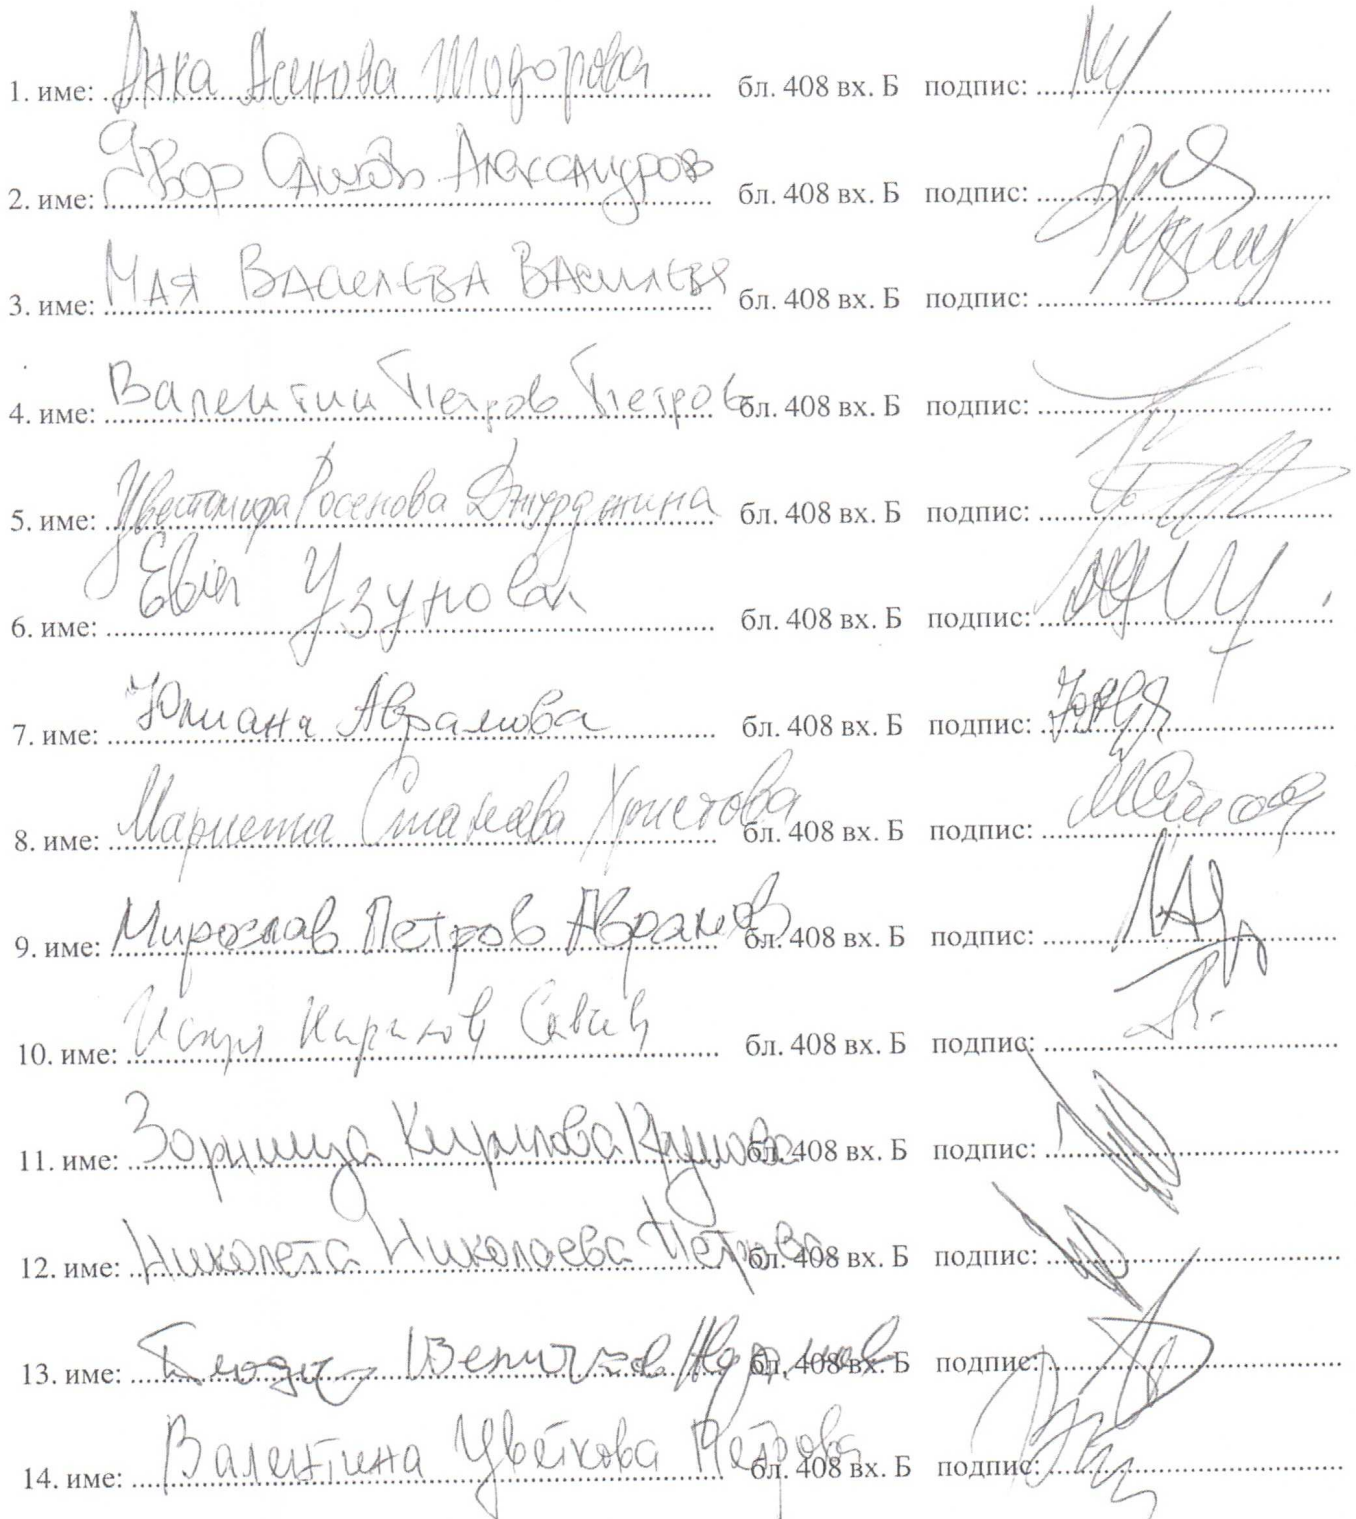 1. име: Анка Асенова Тодорова бл. 408 вх. Б подпис:
2. име: Явор Александров бл. 408 вх. Б подпис:
3. име: МАЯ ВАСИЛЕВА ВАСИЛЕВА бл. 408 вх. Б подпис:
4. име: Валентин Петров Петров бл. 408 вх. Б подпис:
5. име: Цветомира Росенова бл. 408 вх. Б подпис:
6. име: Евия Узунова бл. 408 вх. Б подпис:
7. име: Юлиана Аврамова бл. 408 вх. Б подпис:
8. име: Мариета Станкова Христова бл. 408 вх. Б подпис:
9. име: Мирослав Петров Аврамов бл. 408 вх. Б подпис:
10. име: бл. 408 вх. Б подпис:
11. име: Зорница Кирилова бл. 408 вх. Б подпис:
12. име: Николета Николаева Петрова бл. 408 вх. Б подпис:
13. име: Величков бл. 408 вх. Б подпис:
14. име: Валентина Цветкова Петрова бл. 408 вх. Б подпис: